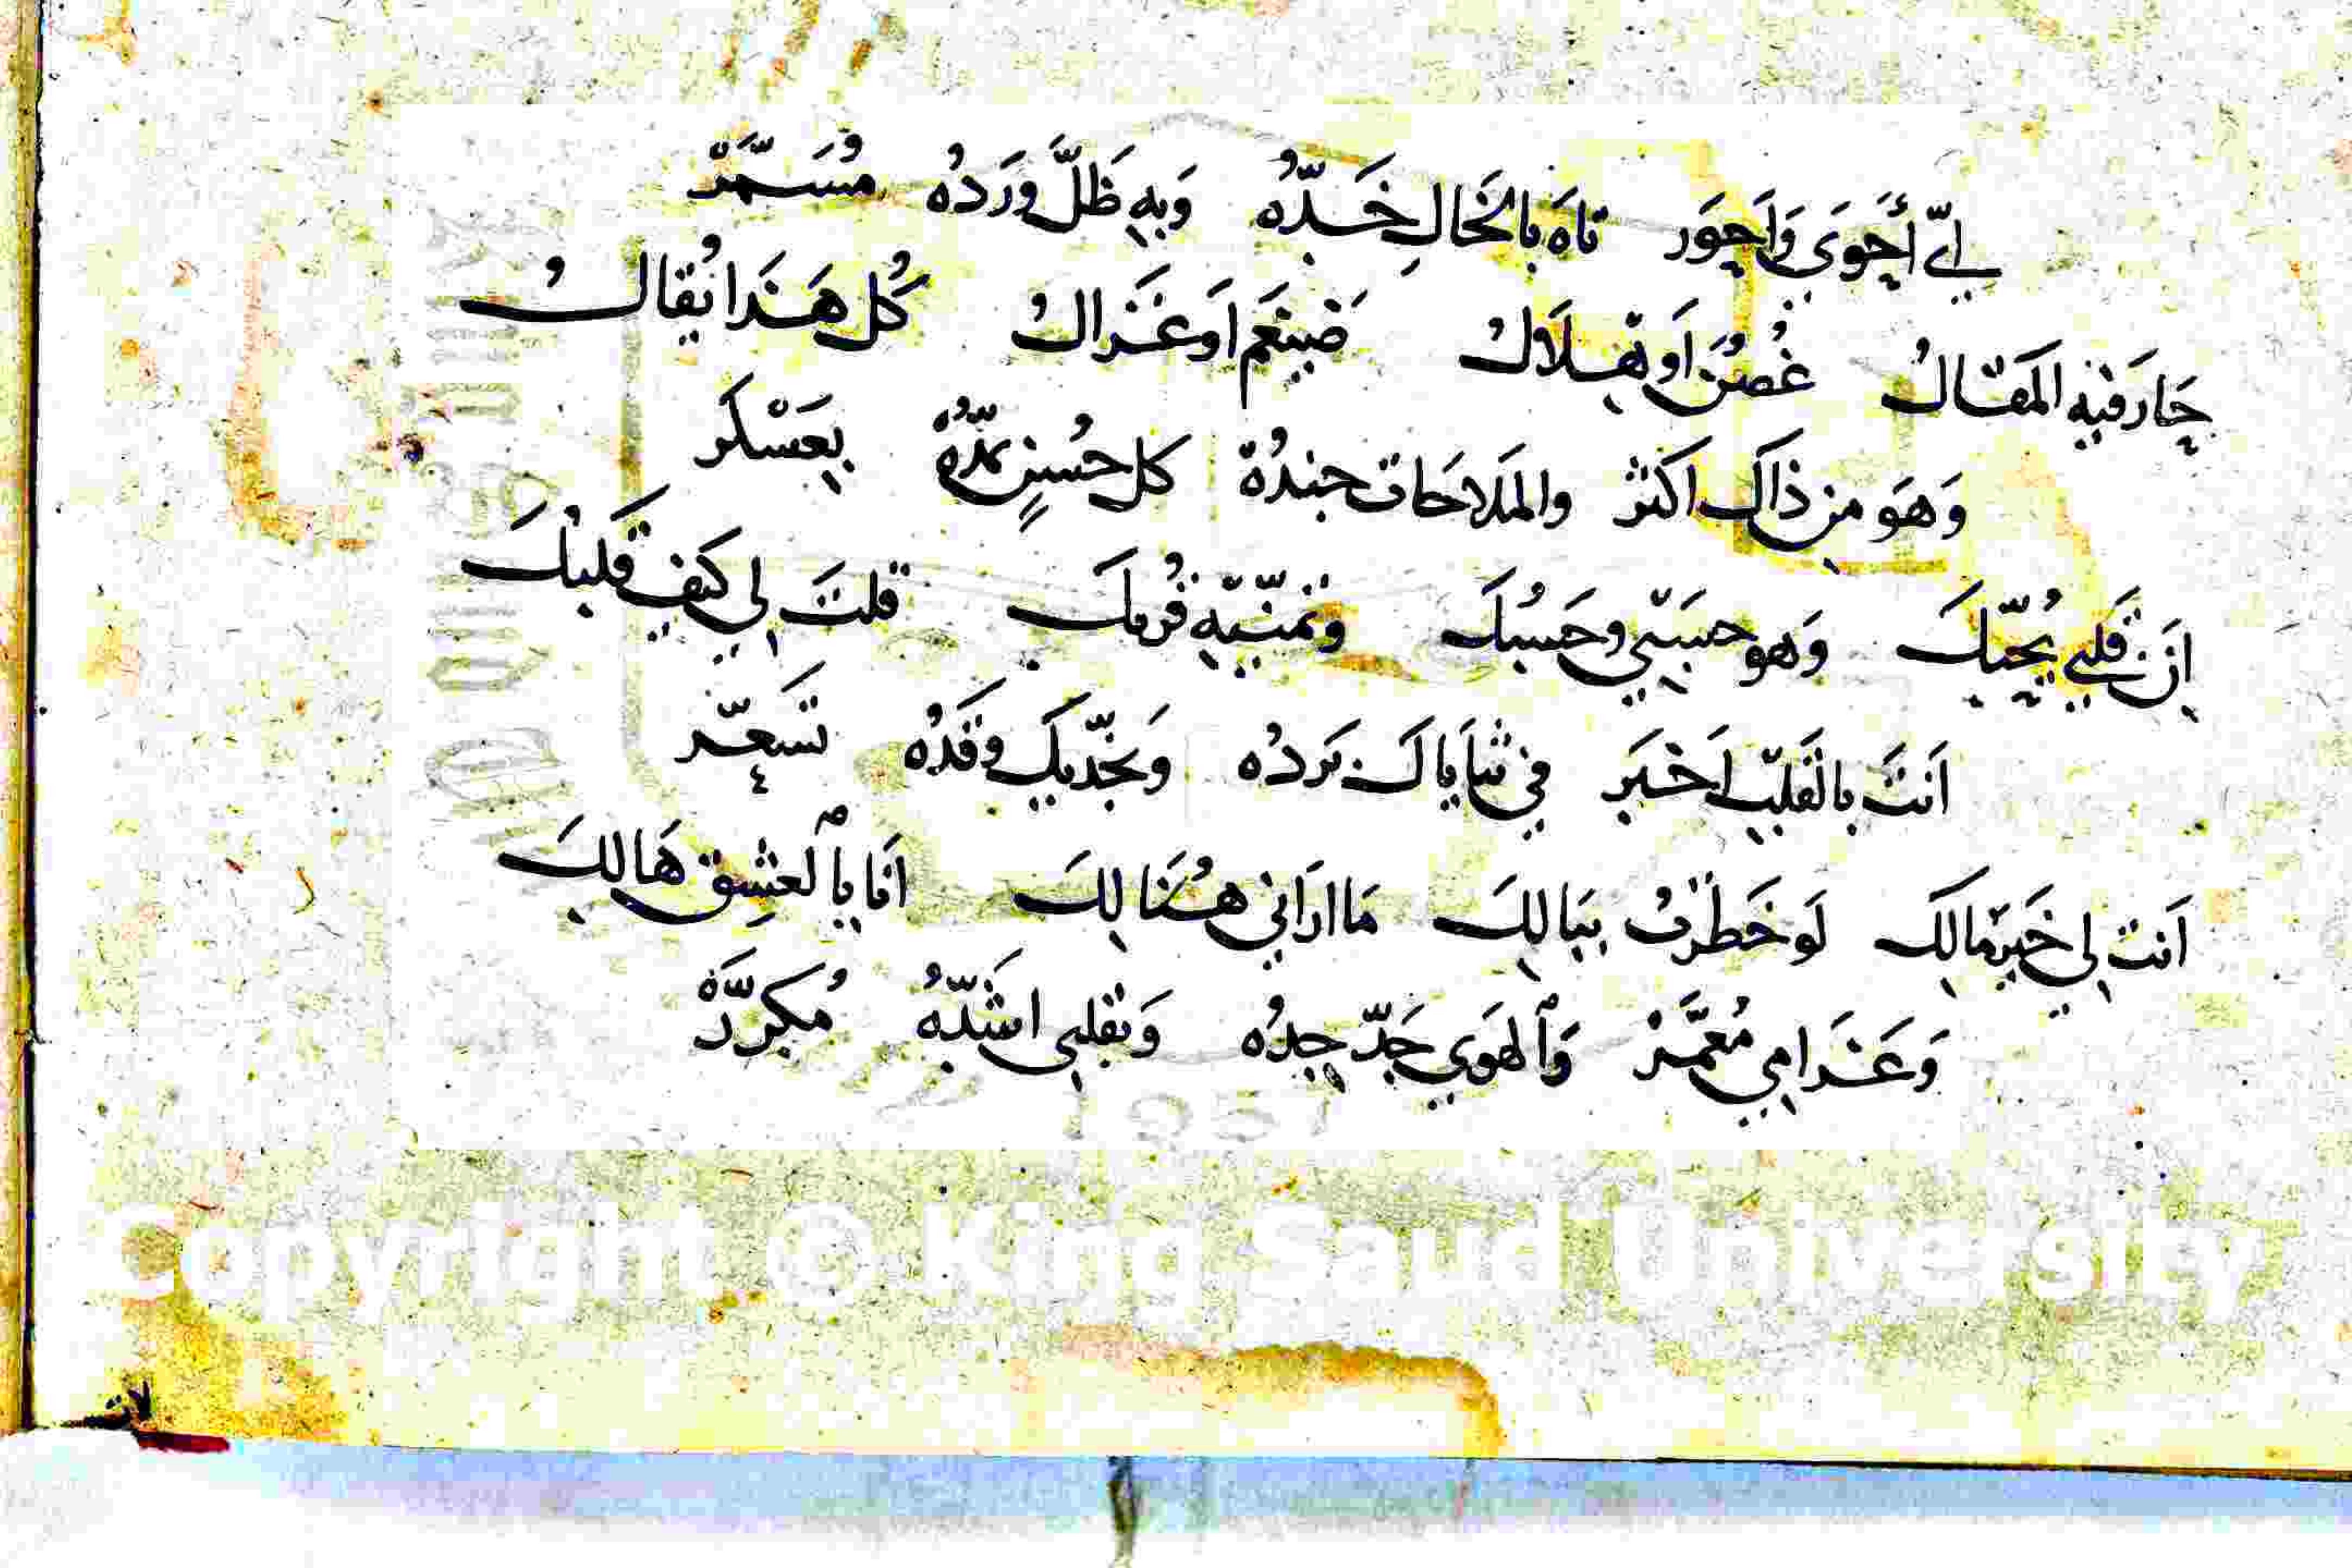 لِيّ أَحْوَى وَاَحوَر تاهَ بالخَالِ خَدّهُ وَبِهِ ظَلَّ وَردُه مُسَمَّرْ
حَارَ فيهِ المَقَالُ غُصُن اَو هِلَالُ ضَيغَم اَو غَزالُ كُل هَذا يُقالُ
وَهوَ مِن ذاكَ اكثَر والمَلاحَات جندُهُ كل حُسنٍ يمَدّهُ بِعَسْكر
اِنَ قَلبي يُحِبّكَ وَهو حَسبي وحَسبُكَ وتمنّيهِ قُربكَ قلتَ لي كيفَ قَلبُكَ
اَنتَ بالقَلبِ اَخبَر في ثنَاياكَ بَردُه وَبخَدّيكَ وقدُه تَسَعّر
اَنتَ لي خَير مالِك لَو خَطَرتُ بِبَالِكَ مَا اراَني هُنَالِكَ اَنا بالعشِق هَالِكَ
وَغَرامي مُعَمَّرْ وَالهَوي جَدّ جِدُه وَبقلبي اشَدّهُ مُكرَّرْ
Copyright © King Saud University